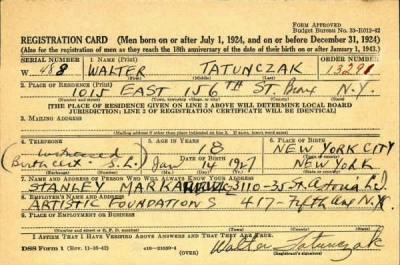 FORM APPROVED
Budget Bureau No. 33-R012-42
REGISTRATION CARD (Men born on or after July 1, 1924, and on or before December 31, 1924)
(Also for the registration of men as they reach the 18th anniversary of the date of their birth on or after January 1, 1943.)
SERIAL NUMBER 1. NAME (Print) ORDER NUMBER
W 488 WALTER TATUNCZAK 13291
(First) (Middle) (Last)
2. PLACE OF RESIDENCE (Print)
1015 EAST 156th ST. Bronx N.Y.
(Number and street) (Town, township, village, or city) (County) (State)
[THE PLACE OF RESIDENCE GIVEN ON LINE 2 ABOVE WILL DETERMINE LOCAL BOARD
JURISDICTION; LINE 2 OF REGISTRATION CERTIFICATE WILL BE IDENTICAL]
3. MAILING ADDRESS
[Mailing address if other than place indicated on line 2. If same, insert word same]
4. TELEPHONE 5. AGE IN YEARS 6. PLACE OF BIRTH
18 NEW YORK CITY
(Birth Cert - S.L.) DATE OF BIRTH
Jan 14 1927 NEW YORK
(Exchange) (Number) (Mo.) (Day) (Yr.) (State or country)
7. NAME AND ADDRESS OF PERSON WHO WILL ALWAYS KNOW YOUR ADDRESS
STANLEY 3110-35 St. Astoria L.I.
8. EMPLOYER'S NAME AND ADDRESS
ARTISTIC FOUNDATIONS 417-Fifth Ave N.Y.
9. PLACE OF EMPLOYMENT OR BUSINESS
(Number and street or R. F. D. number) (Town) (County) (State)
I AFFIRM THAT I HAVE VERIFIED ABOVE ANSWERS AND THAT THEY ARE TRUE.
DSS Form 1 (Rev. 11-16-42) (OVER) Walter Tatunczak
(Registrant's signature)